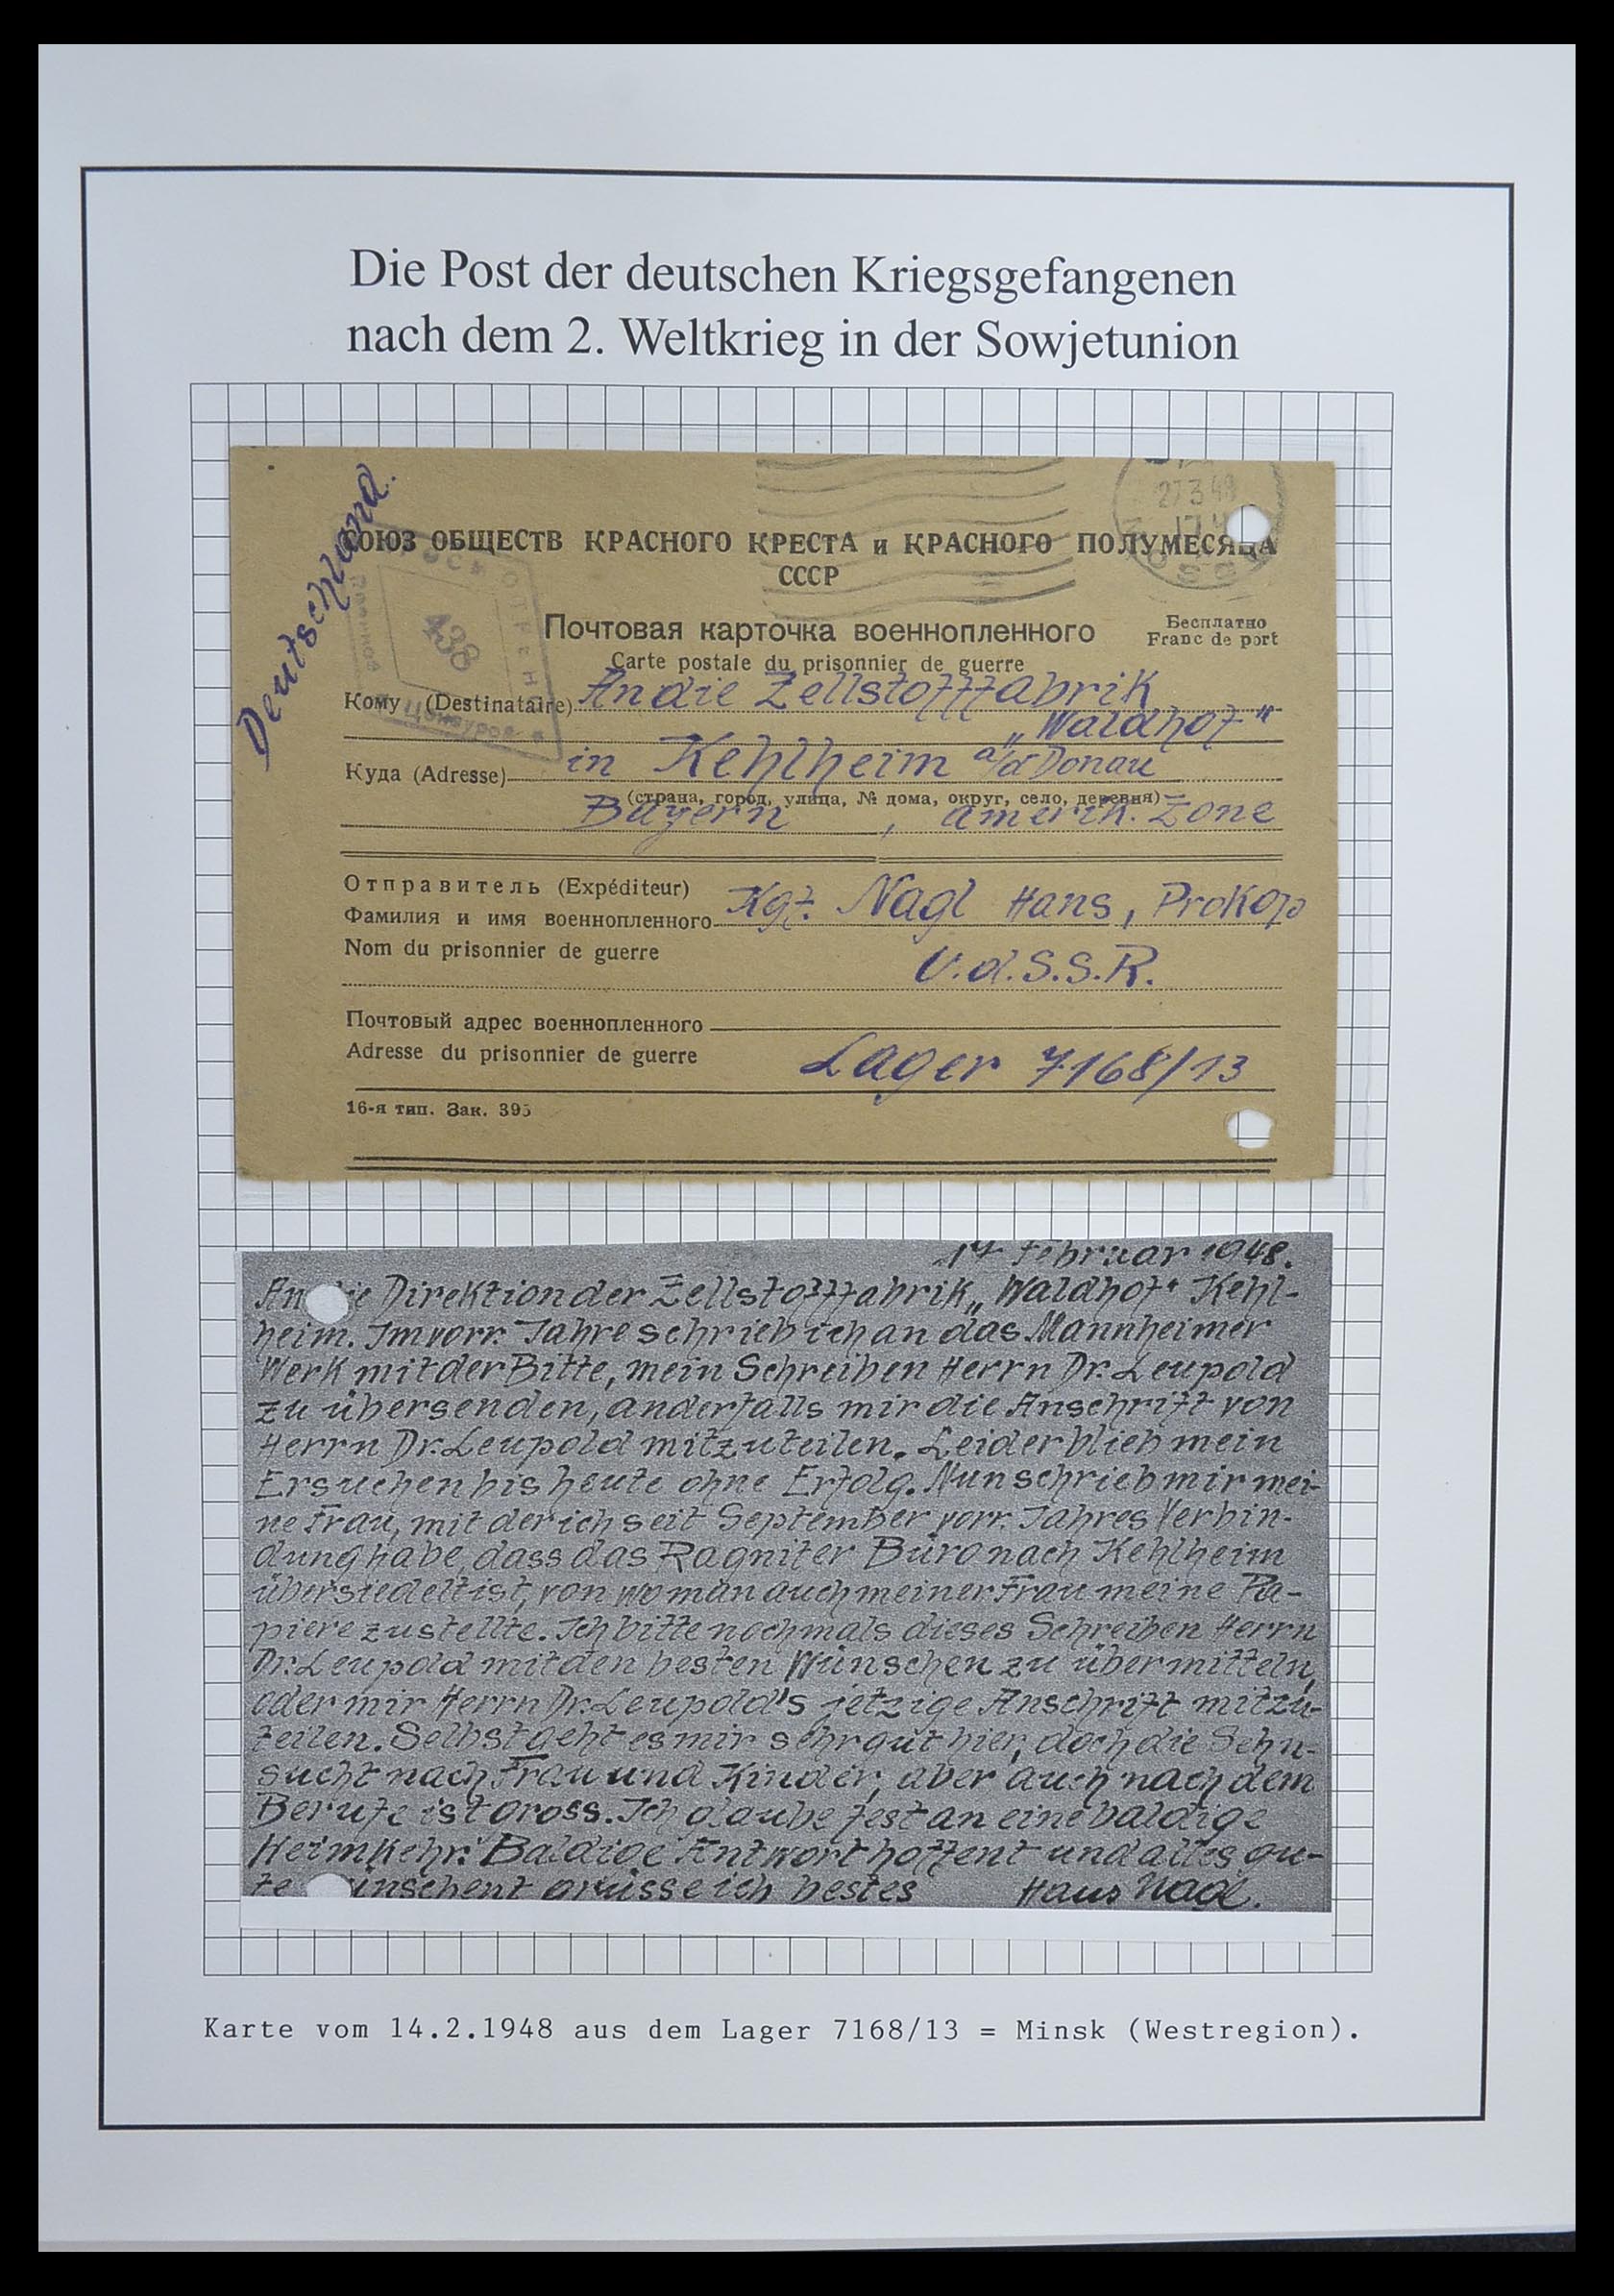 Die Post der deutschen Kriegsgefangenen
nach dem 2. Weltkrieg in der Sowjetunion
Deutschland.
27 3 48
СОЮЗ ОБЩЕСТВ КРАСНОГО КРЕСТА и КРАСНОГО ПОЛУМЕСЯЦА
СССР
Почтовая карточка военнопленного
Бесплатно
Franc de port
Carte postale du prisonnier de guerre
Кому (Destinataire) An die Zellstofffabrik
„Waldhof“
Куда (Adresse) in Kehlheim a/d Donau
(страна, город, улица, № дома, округ, село, деревня)
Bayern, amerik. Zone
Отправитель (Expéditeur)
Фамилия и имя военнопленного Kgf. Nagl Hans, Prokop
Nom du prisonnier de guerre
U.d.S.S.R.
Почтовый адрес военнопленного
Adresse du prisonnier de guerre Lager 7168/13
16-я тип. Зак. 395
14 Februar 1948.
An die Direktion der Zellstofffabrik „Waldhof“ Kehl-
heim. Im vorr. Jahre schrieb ich an das Mannheimer
Werk mit der Bitte, mein Schreiben Herrn Dr. Leupold
zu übersenden, anderfalls mir die Anschrift von
Herrn Dr. Leupold mitzuteilen. Leider blieb mein
Ersuchen bis heute ohne Erfolg. Nun schrieb mir mei-
ne Frau, mit der ich seit September vorr. Jahres Verbin-
dung habe, dass das Ragniter Büro nach Kehlheim
übersiedelt ist, von wo man auch meiner Frau meine Pa-
piere zustellte. Ich bitte nochmals dieses Schreiben Herrn
Dr. Leupold mit den besten Wünschen zu übermitteln,
oder mir Herrn Dr. Leupold's jetzige Anschrift mitzu-
teilen. Selbst geht es mir sehr gut hier, doch die Sehn-
sucht nach Frau und Kinder, aber auch nach dem
Berufe ist gross. Ich glaube fest an eine baldige
Heimkehr. Baldige Antwort hoffent und alles gu-
te wünschent grüsse ich bestes Hans Nagl.
Karte vom 14.2.1948 aus dem Lager 7168/13 = Minsk (Westregion).